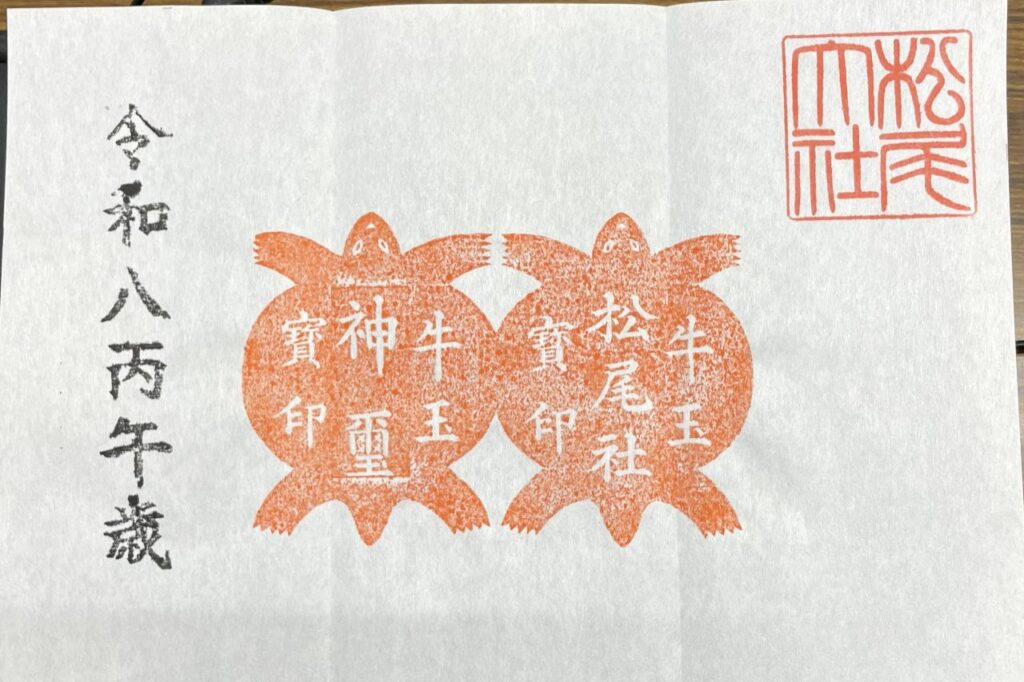 松尾
大社
牛玉
松尾社
寶印
牛玉
神璽
寶印
令和八丙午歳